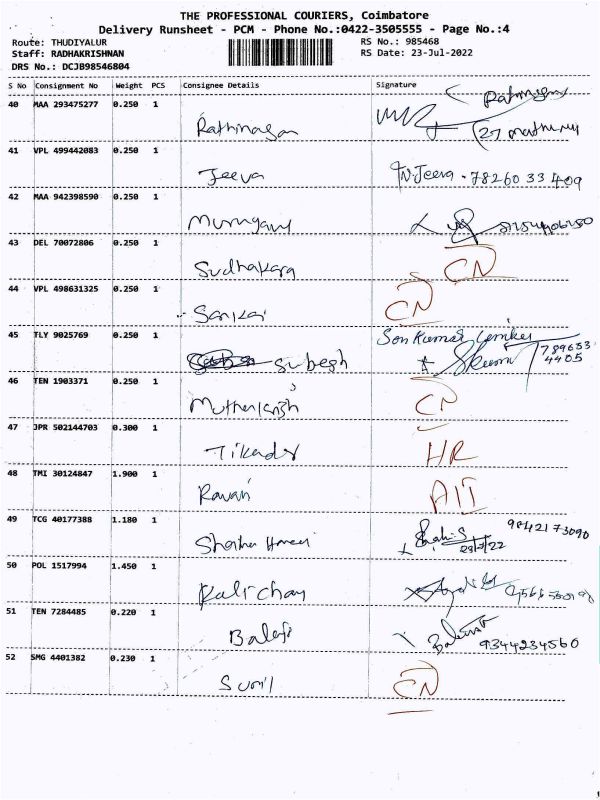 THE PROFESSIONAL COURIERS, Coimbatore
Delivery Runsheet - PCM - Phone No.:0422-3505555 - Page No.:4
Route: THUDIYALUR RS No.: 985468
Staff: RADHAKRISHNAN RS Date: 23-Jul-2022
DRS No.: DCJB98546804
S No Consignment No Weight PCS Consignee Details Signature
40 MAA 293475277 0.250 1
Rathinagan
41 VPL 499442083 0.250 1
Jeeva N.Jeeva - 78260 33409
42 MAA 942398590 0.250 1
Murugavel
43 DEL 70072806 0.250 1
Sudhakara CN
44 VPL 498631325 0.250 1
Sankar CN
45 TLY 9025769 0.250 1
Subegh 789653
4405
46 TEN 1903371 0.250 1
CN
47 JPR 502144703 0.300 1
Tikader HR
48 TMI 30124847 1.900 1
Ravan AIT
49 TCG 40177388 1.180 1
9842173090
50 POL 1517994 1.450 1
Kalichan
51 TEN 7284485 0.220 1
Balaji 9344234560
52 SMG 4401382 0.230 1
Sunil CN